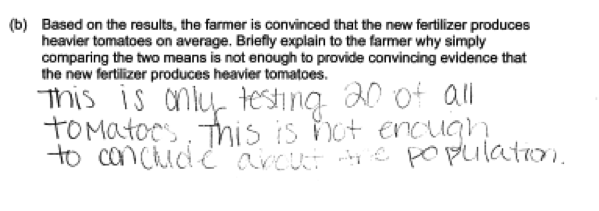 (b) Based on the results, the farmer is convinced that the new fertilizer produces
heavier tomatoes on average. Briefly explain to the farmer why simply
comparing the two means is not enough to provide convincing evidence that
the new fertilizer produces heavier tomatoes.
This is only testing 20 of all
tomatoes. This is not enough
to conclude about the population.